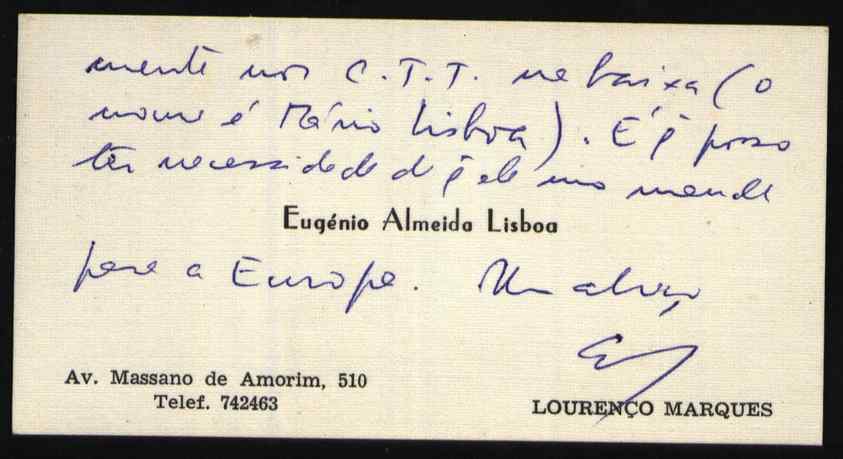 mente nos C.T.T. na baixa (o
nome é Mário Lisboa). É q̃ posso
ter necessidade de q̃ ele mo mande
Eugénio Almeida Lisboa
para a Europa. Um abraço
Av. Massano de Amorim, 510
Telef. 742463
LOURENÇO MARQUES